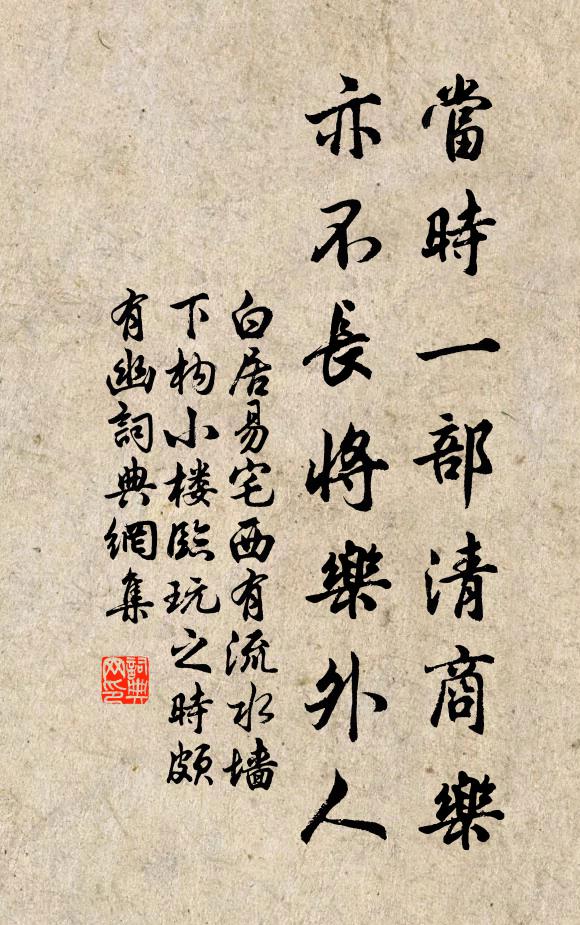 當時一部清商樂
亦不長將樂外人
白居易宅西有流水墙
下构小楼臨玩之時頗
有幽詞典網集
詞典
网印